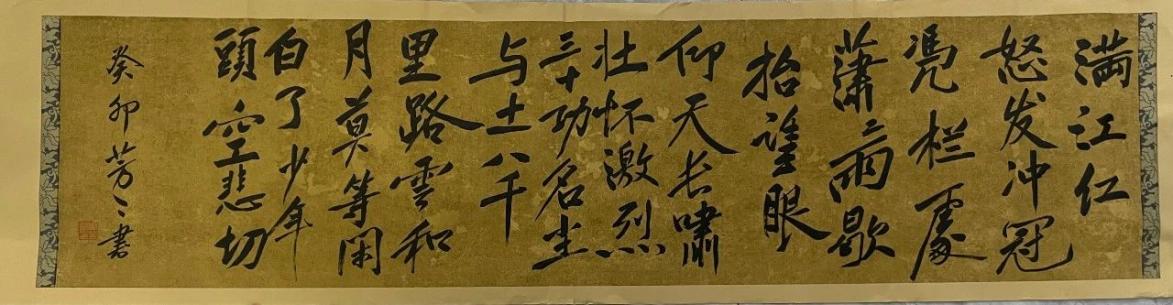 满江红
怒发冲冠
凴栏處
瀟々雨歇
抬望眼
仰天长嘯
壮怀激烈
三十功名尘
与土八千
里路雲和
月莫等闲
白了少年
頭空悲切
癸卯芳々書